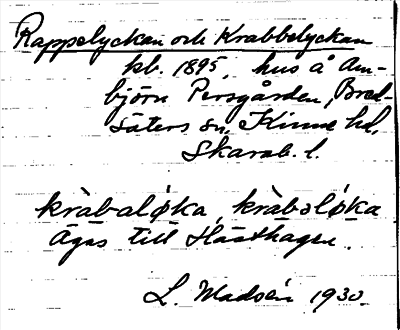 Rappelyckan och Krabbelyckan
kb. 1895, hus å Am-
björn Persgården, Bred-
säters sn, Kinne hd,
Skarab. l.
kràbaløka, kràbəløka
Ägas till Hästhagen.
L. Madsén 1930.